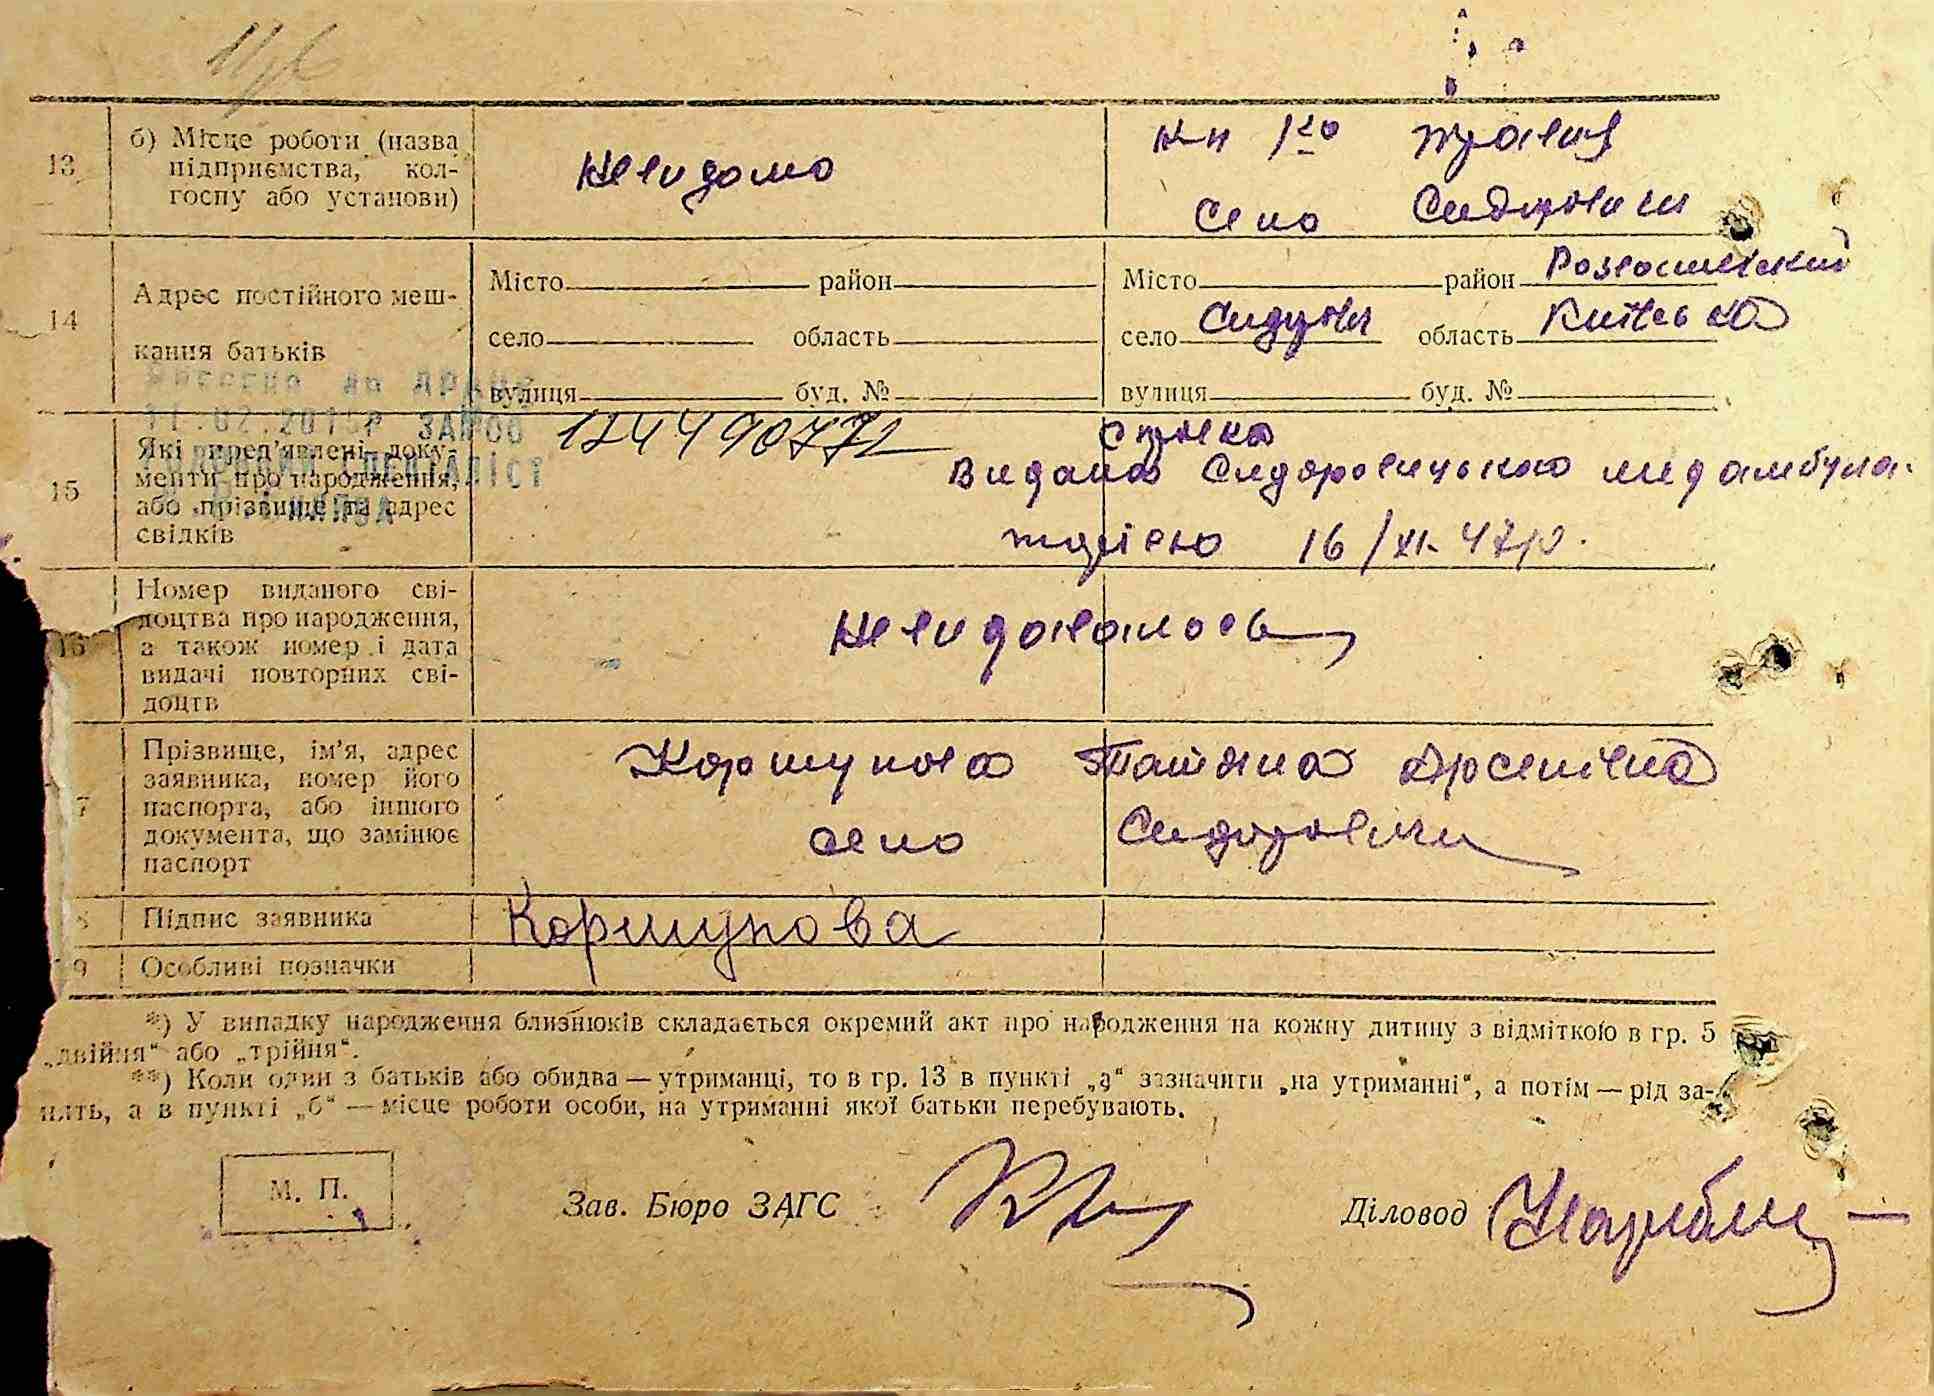 13
б) Місце роботи (назва
підприємства, кол-
госпу або установи)
Невидомо
К-п 1го травня
село Сидоровичи
14
Адрес постійного меш-
кання батьків
Місто район
село область
вулиця буд. №
Місто район Розваживський
село область Київська
вулиця буд. №
11.02.2015р
15
Які пред'явлені доку-
менти про народження,
або прізвище та адрес
свідків
Справка
Видана Сидоровицькою медамбула-
торією 16/XI-47р.
16
Номер виданого сві-
доцтва про народження,
а також номер і дата
видачі повторних сві-
доцтв
Невидавалось
7
Прізвище, ім'я, адрес
заявника, номер його
паспорта, або іншого
документа, що замінює
паспорт
Коршунова Арсенівна
село Сидоровичи
8
Підпис заявника
Коршунова
9
Особливі позначки
*) У випадку народження близнюків складається окремий акт про народження на кожну дитину з відміткою в гр. 5
„двійня“ або „трійня“.
**) Коли один з батьків або обидва — утриманці, то в гр. 13 в пункті „а“ зазначити „на утриманні“, а потім — рід за-
нять, а в пункті „б“ — місце роботи особи, на утриманні якої батьки перебувають.
М. П.
Зав. Бюро ЗАГС
Діловод